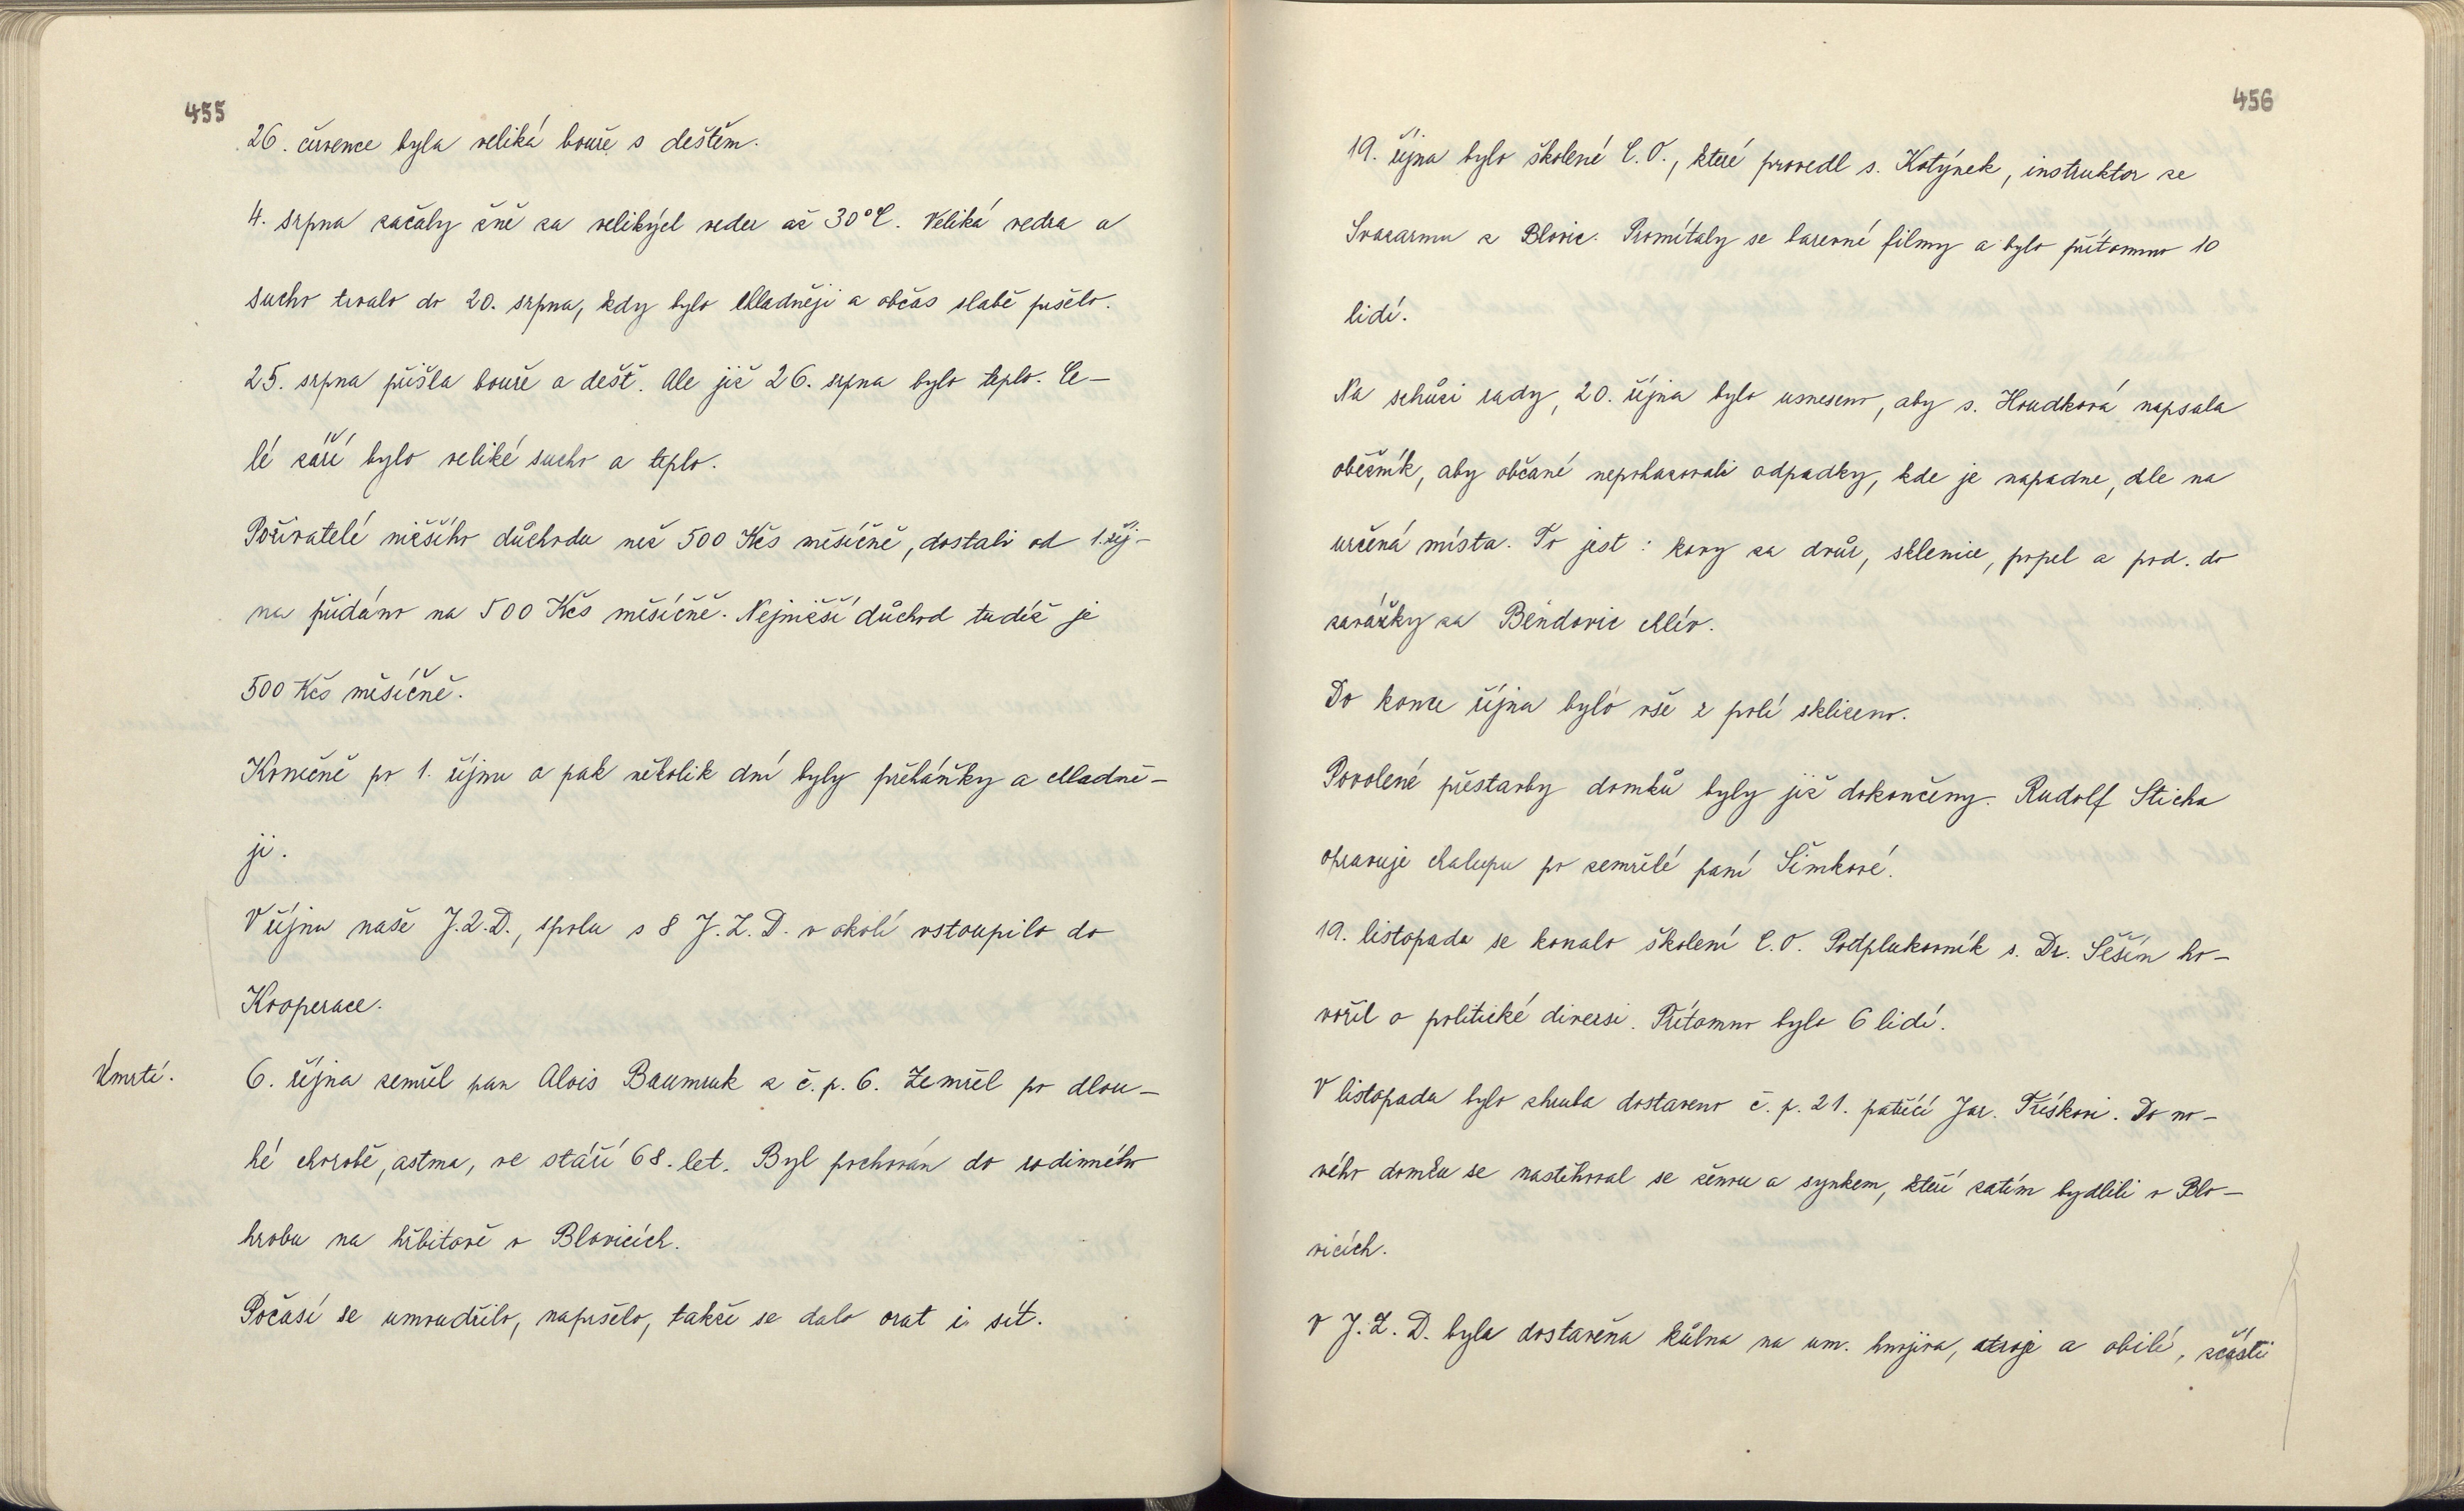 455
26. července byla veliká bouře s deštěm.
4. srpna začaly žně za velikých veder až 30°C. Veliká vedra a
sucho trvalo do 20. srpna, kdy bylo chladněji a občas slabě pršelo.
25. srpna přišla bouře a déšť. Ale již 26. srpna bylo teplo. Ce-
lé září bylo veliké sucho a teplo.
Poživatelé nižšího důchodu než 500 Kčs měsíčně, dostali od 1. říj-
na přidáno na 500 Kčs měsíčně. Nejnižší důchod tudíž je
500 Kčs měsíčně.
Konečně po 1. říjnu a pak několik dní byly přeháňky a chladně-
ji.
V říjnu naše J.Z.D., spolu s 8 J.Z.D. v okolí vstoupilo do
Kooperace.
Úmrtí.
6. října zemřel pan Alois Baumruk z č.p. 6. Zemřel po dlou-
hé chorobě, astma, ve stáří 68. let. Byl pochován do rodinného
hrobu na hřbitově v Blovicích.
Počasí se umoudřilo, napršelo, takže se dalo orat i sít.
456
19. října bylo školené C.O., které provedl s. Kotýnek, instruktor ze
Svazarmu z Blovic. Promítaly se barevné filmy a bylo přítomno 10
lidí.
Na schůzi rady, 20. října bylo usneseno, aby s. Houdková napsala
oběžník, aby občané nepohazovali odpadky, kde je napadne, ale na
určená místa. To jest: kovy za dvůr, sklenice, popel a pod. do
zarážky za Bendovic chlív.
Do konce října bylo vše z polí sklizeno.
Povolené přestavby domků byly již dokončeny. Rudolf Sticha
opravuje chalupu po zemřelé paní Šimkové.
19. listopadu se konalo školení C.O. Podplukovník s. Dr. Šeším ho-
vořil o politické diversi. Přítomno bylo 6 lidí.
V listopadu bylo zhruba dostaveno č.p. 21. patřící Jar. Tříškovi. Do no-
vého domku se nastěhoval se ženou a synkem, kteří zatím bydlili v Blo-
vicích.
V J.Z.D. byla dostavěna kůlna na um. hnojiva, stroje a obilí, zčásti